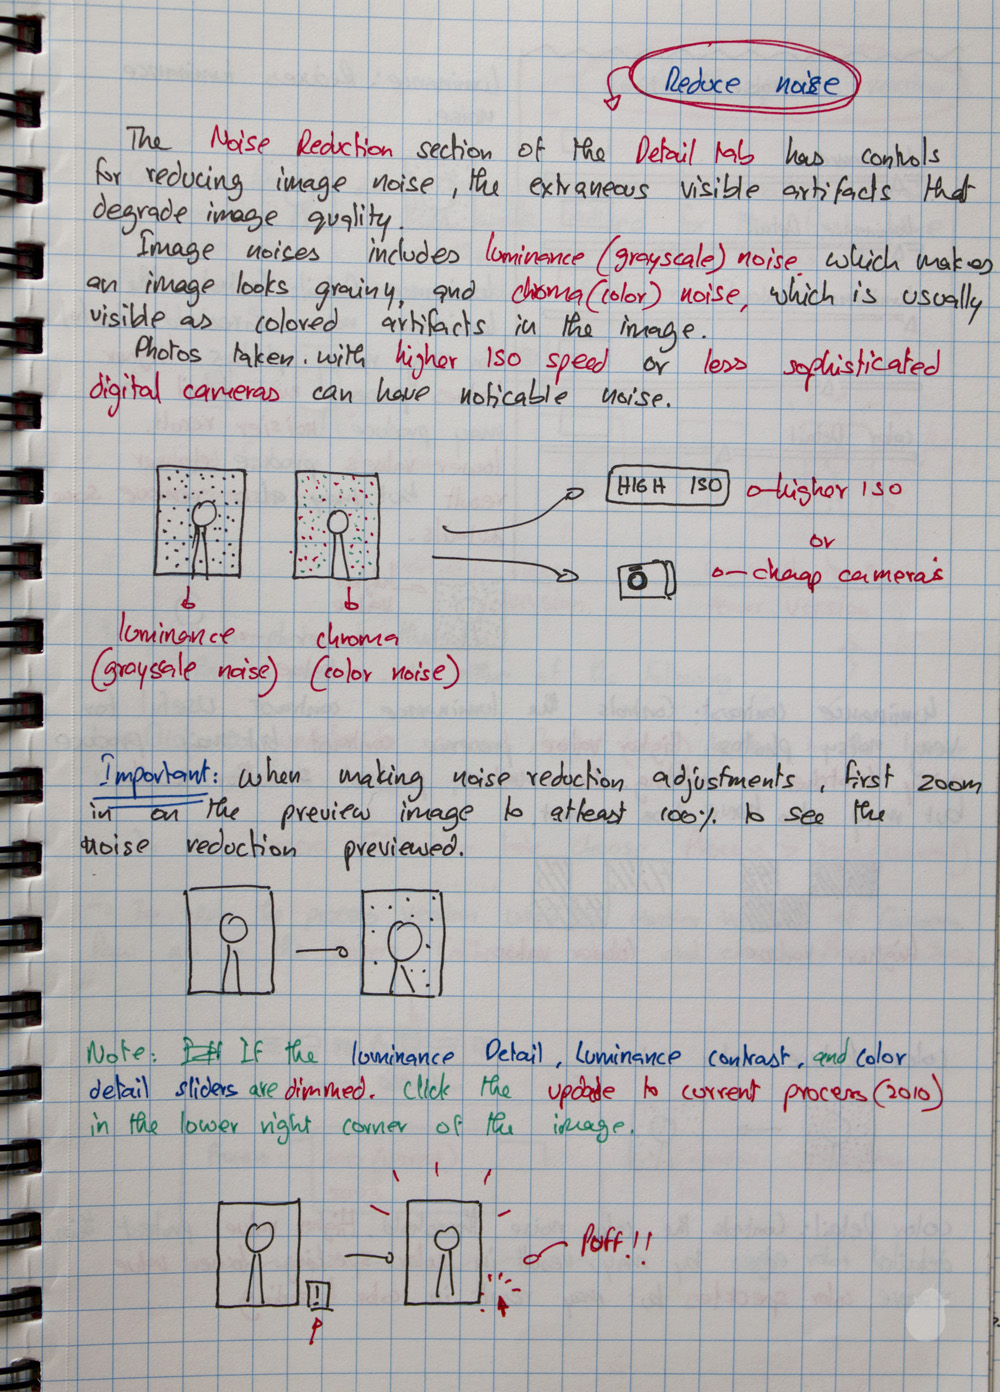 Reduce noise
The Noise Reduction section of the Detail tab has controls
for reducing image noise, the extraneous visible artifacts that
degrade image quality.
Image noises includes luminance (grayscale) noise, which makes
an image looks grainy, and chroma (color) noise, which is usually
visible as colored artifacts in the image.
Photos taken with higher ISO speed or less sophisticated
digital cameras can have noticable noise.
HIGH ISO
higher ISO
or
cheap cameras
luminance
(grayscale noise)
chroma
(color noise)
Important: When making noise reduction adjustments, first zoom
in on the preview image to atleast 100% to see the
noise reduction previewed.
Note: If the luminance Detail, Luminance contrast, and color
detail sliders are dimmed. Click the update to current process (2010)
in the lower right corner of the image.
!
Poff!!